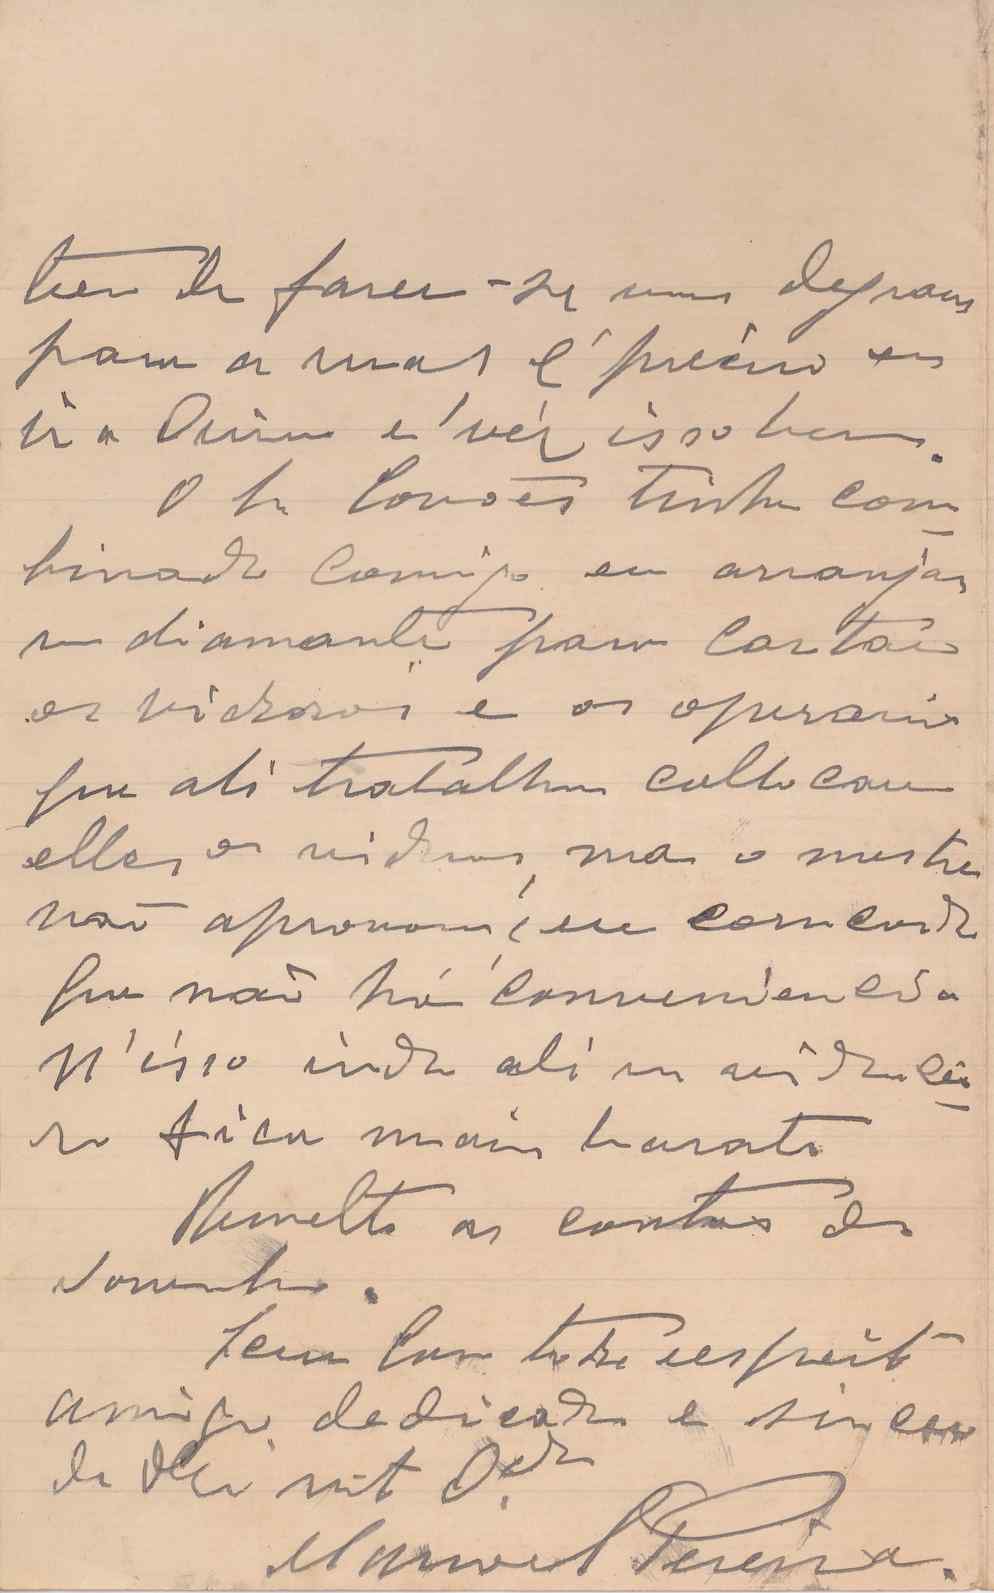 tem de fazer-se uns degraus
para a rua e é preciso eu
ir a Ouim e vêr isso bem.
O Sr. Camões tinha com
binado comigo eu arranjar
um diamante para cortar
os vidros e os operarios
que ali trabalham collocarem
elles os vidros, mas o mestre
não aprovou, eu concordo
que não há conveniencia
n'isso indo ali um vidracei
ro fica mais barato
Remetto as contas de
Novembro.
Sou com todo respeito
amigo dedicado e sincero
de V. Ex.ª mt.º Obr.do
Manoel Pereira.